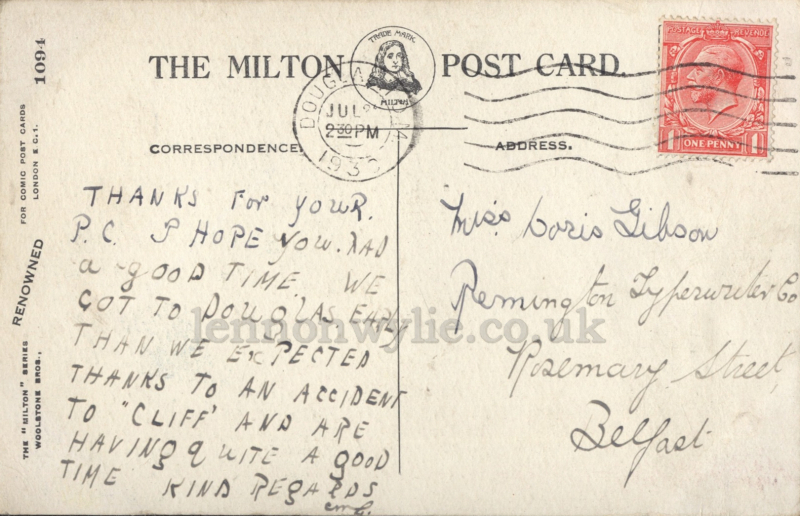 THE MILTON POST CARD.
TRADE MARK
MILTON
POSTAGE REVENUE
1 ONE PENNY 1
DOUGLAS I.O.M
JUL
2 30 PM
193
CORRESPONDENCE.
ADDRESS.
THANKS FOR YOUR.
P.C. I HOPE YOU. HAD
a GOOD TIME WE
GOT TO DOUGLAS EARLY
THAN WE EXPECTED
THANKS TO AN ACCIDENT
TO "CLIFF" AND ARE
HAVING QUITE A GOOD
TIME KIND REGARDS
Miss Doris Gibson
Remington Typewriter Co
Rosemary Street,
Belfast
THE "MILTON" SERIES RENOWNED FOR COMIC POST CARDS 1094
WOOLSTONE BROS., LONDON E.C.1.
lennonwylie.co.uk